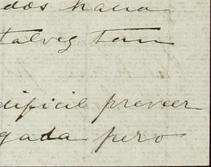 dos hacia
talvez tan
dificil preveer
gada pero